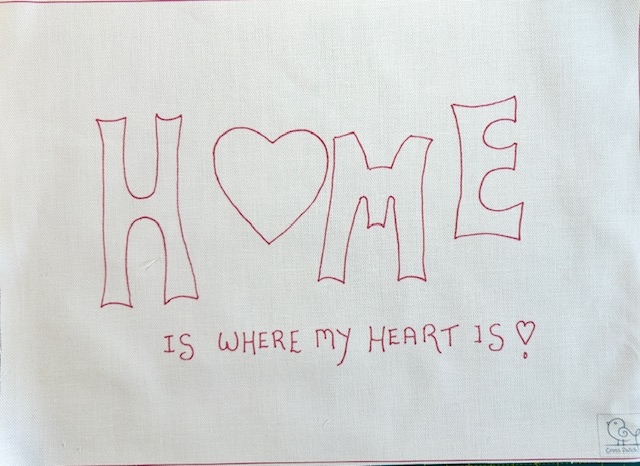 H♡ME
IS WHERE MY HEART IS